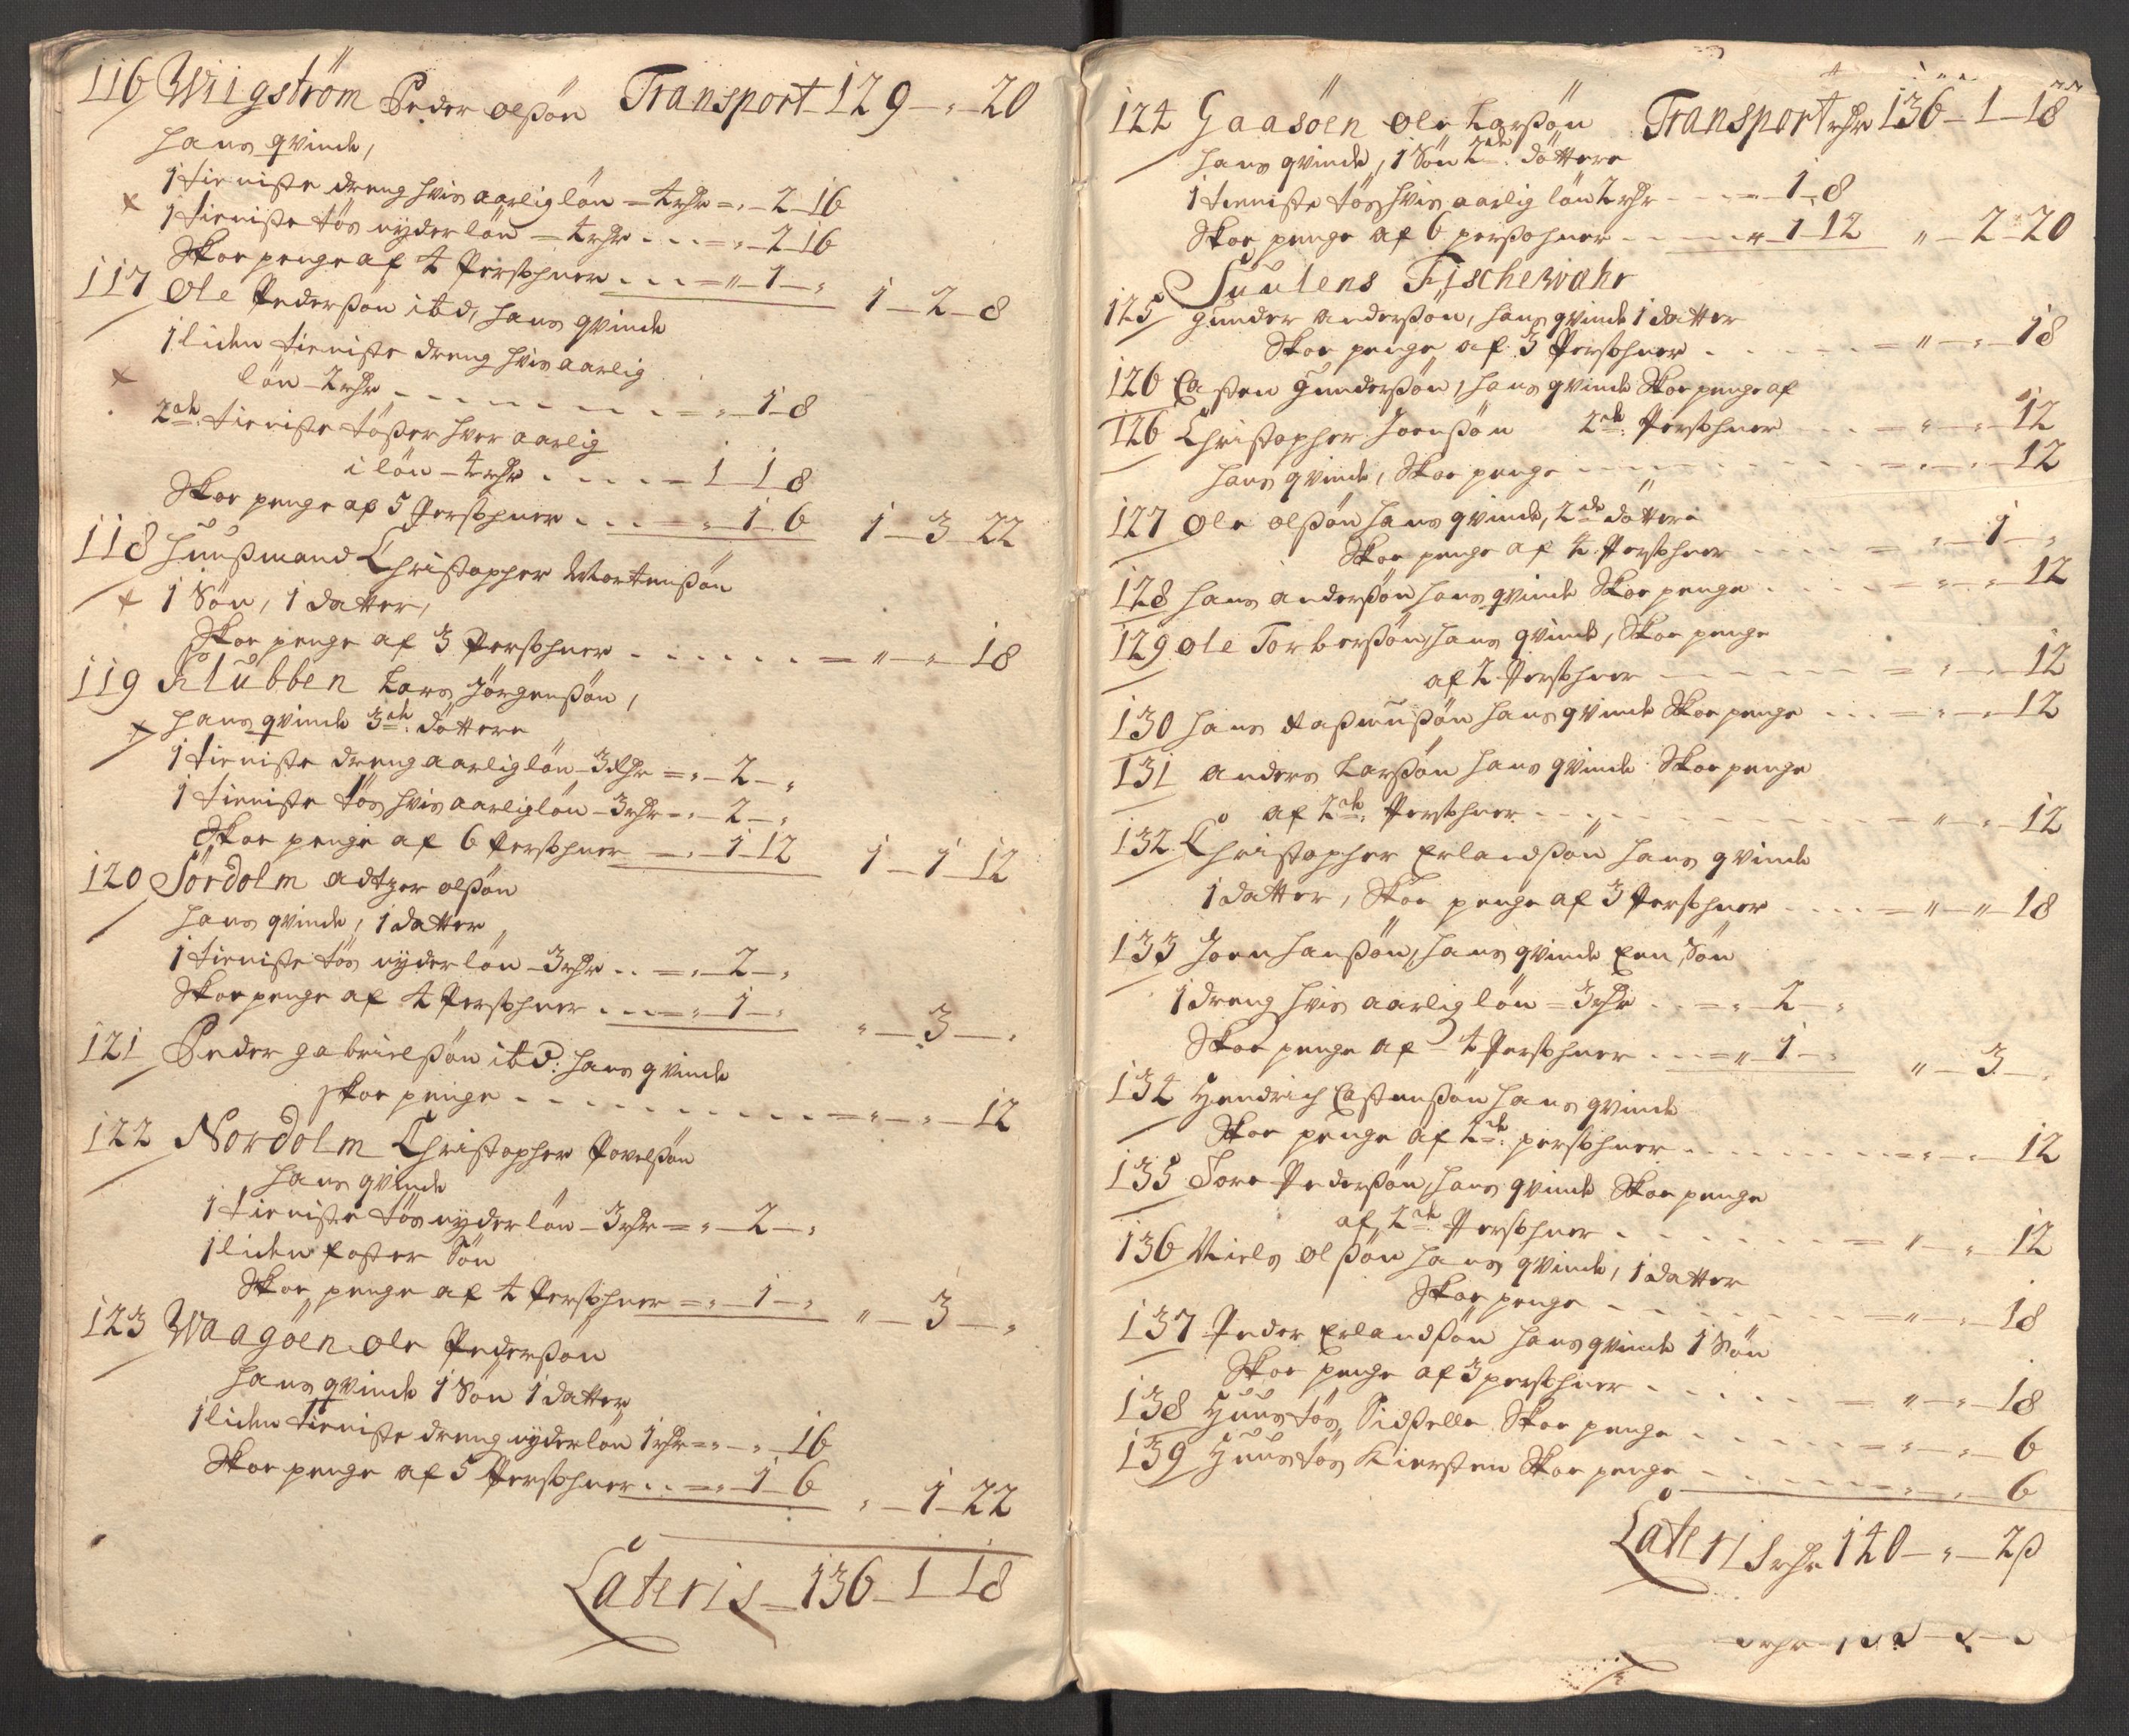 116 Wiigström Peder olßön Transport 129 — „ — 20
hans qvinde,
1 tieniste dreng hvis aarlig lön — 4 rdr = „ — 2 — 16
1 tieniste tös nyder lön — 4 rdr . . . = „ — 2 — 16
Skoe penge af 4 Persohner . . . = „ — 1 — „ 1 — 2 — 8
117 Ole Pederßön ibd, hans qvinde
1 liden tieniste dreng hvis aarlig
lön — 2 rdr . . . . = „ — 1 — 8
2de tieniste tößer hver aarlig
i lön — 4 rdr . . . . — 1 — 1 — 8
Skoe penge af 5 Persohner . . . = „ — 1 — 6 1 — 3 — 22
118 Huußmand Christopher Mortenßön
1 Sön, 1 datter,
Skoe penge af 3 Persohner . . . . . . = „ — „ — 18
119 Klubben Lars Jörgenßön,
hans qvinde 3de döttere
1 tieniste dreng aarlig lön — 3 Rdr = „ — 2 — „
1 tieniste tös hvis aarlig lön — 3 rdr = „ — 2 — „
Skoe penge af 6 Persohner — „ — 1 — 12 1 — 1 — 12
120 Sördolm adtzer olßön
hans qvinde, 1 datter
1 tieniste tös nyder lön — 3 rdr . . = „ — 2 — „
Skoe penge af 4 Persohner . . . = „ — 1 — „ „ — 3 — „
121 Peder gabrielßön ibd: hans qvinde
skoe penge . . . . . . = „ — „ — 12
122 Nordolm Christopher Povelßön
hans qvinde
1 tieniste tös nyder lön — 3 rdr = „ — 2 — „
1 liden foster Sön
Skoe penge af 4 Persohner = „ — 1 — „ „ — 3 — „
123 Waagöen Ole Pederßön
hans qvinde 1 Sön 1 datter
1 liden tieniste dreng nyder lön 1 rdr = „ — „ — 16
Skoe penge af 5 Persohner . . = „ — 1 — 6 „ — 1 — 22
Lateris — 136 — 1 — 18
124 Gaasöen Ole Larßön Transport rdr 136 — 1 — 18
hans qvinde, 1 Sön 2de döttere
1 tieniste tös hvis aarlig lön 2 rdr . . = — 1 — 8
Skoe penge af 6 persohner . . . „ — 1 — 12 „ — 2 — 20
Suulens Fischewahr
125 Gunder Anderßön, hans qvinde 1 datter
Skoe penge af 3 Persohner . . . . = „ — „ — 18
126 Casten Gunderßön, hans qvinde Skoe penge af
2de Persohner . . . = „ — „ — 12
126 Christopher Joenßön
hans qvinde, Skoe penge . . . . . = „ — „ — 12
127 Ole olßön hans qvinde, 2de döttere
Skoe penge af 4 Persohner . . . . = „ — 1 — „
128 hans anderßön hans qvinde Skoe penge . . . . = „ — „ — 12
129 Ole Torberßön, hans qvinde, Skoe penge
af 2 Persohner . . . . = „ — „ — 12
130 hans Raßmußön hans qvinde Skoe penge . . . = „ — „ — 12
131 anders Larßön hans qvinde Skoe penge
af 2de Persohner . . . . . = „ — „ — 12
132 Christopher Erlandßön hans qvinde
1 datter, Skoe penge af 3 Persohner . . . . = „ — „ — 18
133 Joen hanßön, hans qvinde Een Sön
1 dreng hvis aarlig lön = 3 rdr . . = „ — 2 — „
Skoe penge af — 4 Persohner . . . = „ — 1 — „ „ — 3 — „
134 Hendrich Castenßön hans qvinde
Skoe penge af 2de persohner . . . . . = „ — „ — 12
135 Tore Pederßön, hans qvinde Skoe penge
af 2de Persohner . . . . . = „ — „ — 12
136 Niels olßön hans qvinde, 1 datter
Skoe penge . . . . . = „ — „ — 18
137 Peder Erlandßön hans qvinde 1 Sön
Skoe penge af 3 persohner . . . . . = „ — „ — 18
138 Huustös Sidßelle Skoe penge . . . . . = „ — „ — 6
139 Huustös Kiersten Skoe penge . . . . . „ — „ — 6
Lateris rdr 140 — „ — 2 ß